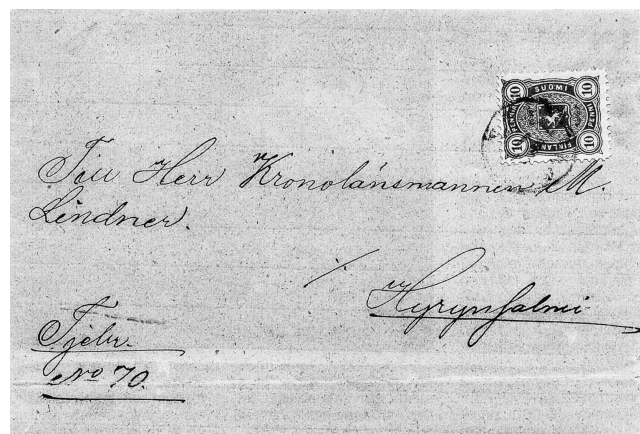 10 SUOMI 10
PENNIÄ PENNIÄ
10 FINLAND 10
Till Herr Kronolänsmannen M.
Lindner.
Hyrynsalmi
Tjebr.
No 70.